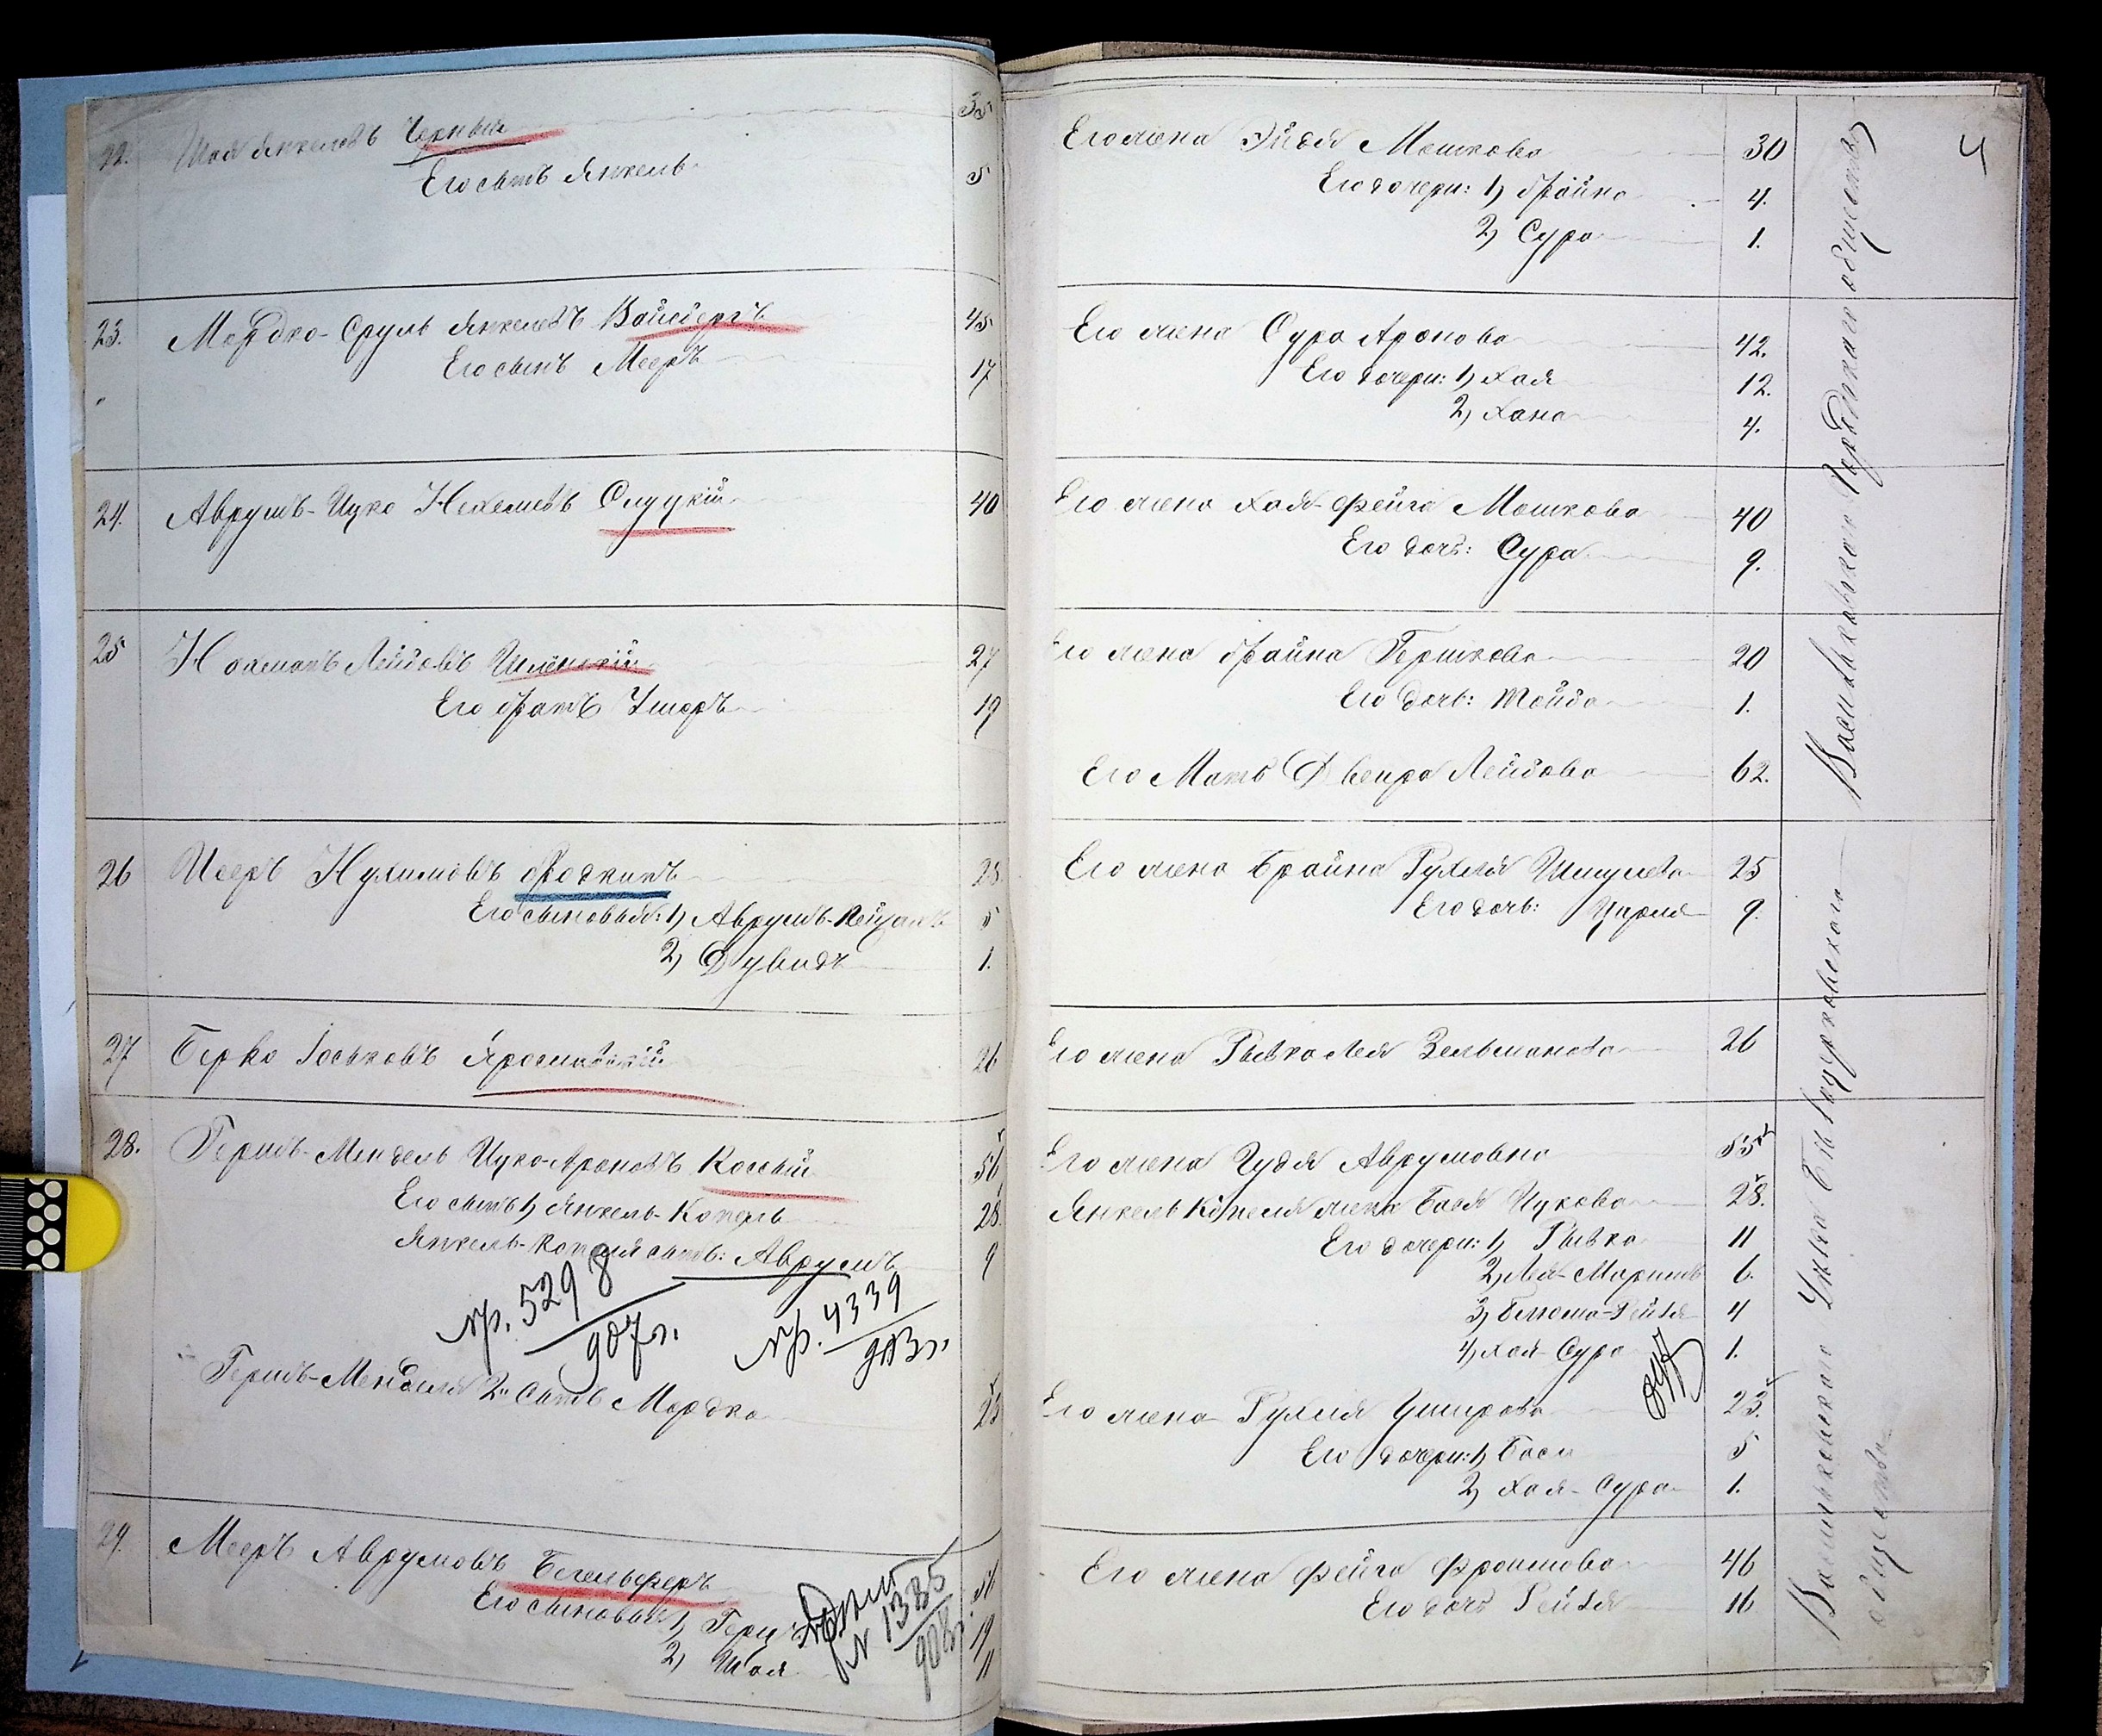 22. Шая Янкелевъ Черный 35
Его сынъ Янкель 5
23. Мордко-Сруль Янкелевъ Вайсбергъ 45
Его сынъ Мееръ 17
24. Аврумъ-Ицко Нехемевъ Слуцкій 40
25 Нахманъ Лейбовъ 27
Его братъ Ушеръ 19
26 Мееръ Нухимовъ Фрадкинъ 28
Его сыновья: 1) Аврумъ-Лейзаръ 5
2) Дувидъ 1.
27 Берко Іоськовъ Ярославскій 26
28. Гершъ-Мендель Ицко-Ароновъ Косый 56
Его сынъ 1) Янкель-Копель 28
Янкель-Копеля сынъ: Аврумъ 9
№р. 5298
907 г.
№р. 4339
913 г.
Гершъ-Менделя 2й Сынъ Мордко 23
29. Мееръ Аврумовъ Бегельферъ 56
Его сыновья: 1) Гершъ 19
2) Шая 11
№ 1385
908 г.
4
Его жена Эйдя Мошкова 30
Его дочери: 1) Брайна 4.
2) Сура 1.
Его жена Сура Аронова 42.
Его дочери: 1) Хая 12.
2) Хана 4.
Его жена Хая-Фейга Мошкова 40
Его дочь: Сура 9.
Его жена Брайна Гершкова 20
Его дочь: Тойба 1.
Его Мать Двейра Лейбова 62.
Его жена Брайна Рухля Шмулева 25
Его дочь: Цирля 9.
Его жена Рывка Лея Зельманова 26
Его жена Гудя Аврумовна 55
Янкель Копеля жена Бася Ицкова 28.
Его дочери: 1) Рывка 11
2) Лея-Маримъ 6.
3) Блюма-Рейзя 4
4) Хая-Сура 1.
Его жена Рухля Ушерова 23.
Его дочери: 1) Бася 5
2) Хая-Сура 1.
Его жена Фейга Фроимова 46
Его дочь Рейзя 16
Васильковскаго Уѣзда Бѣлоцерковскаго
общества